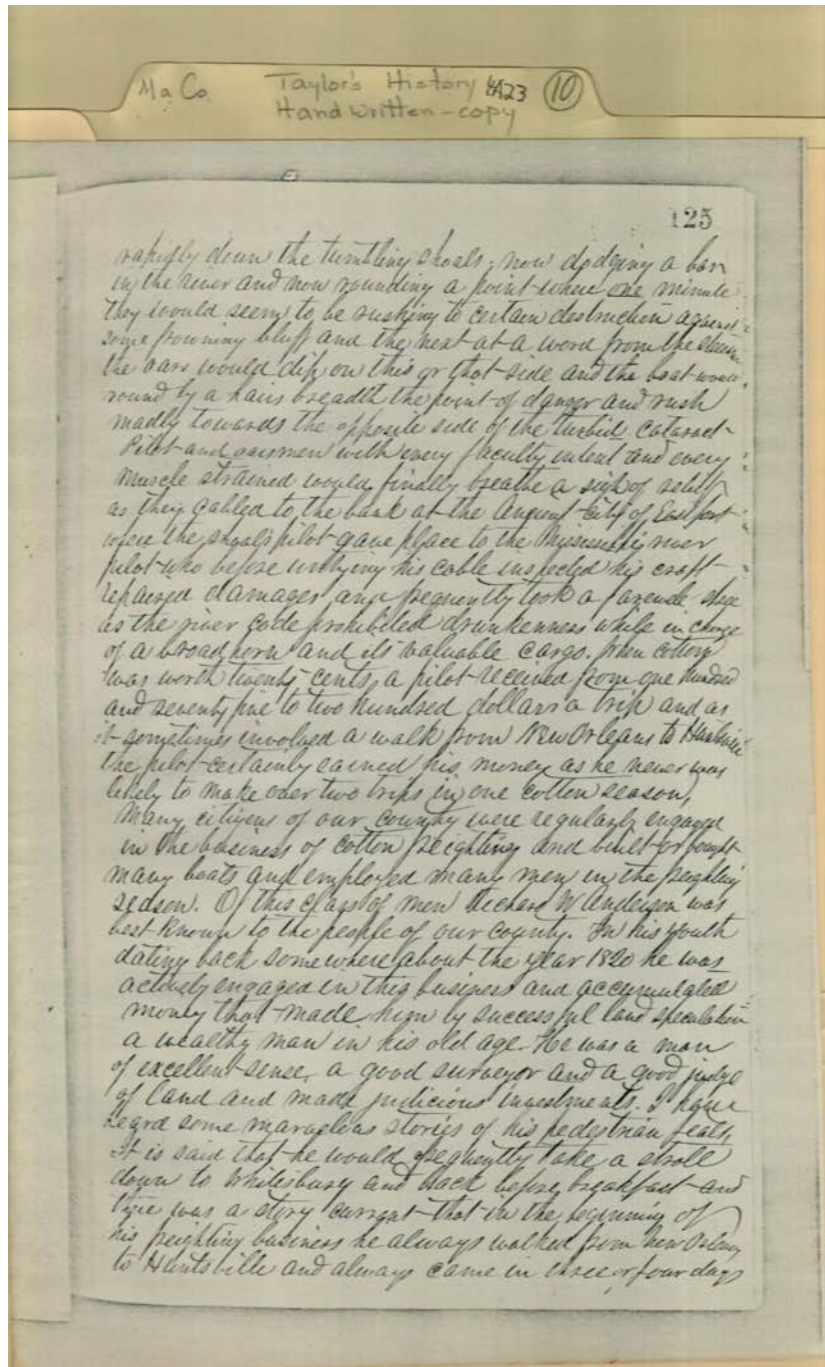 Ma Co Taylor's History 4A23 10
Handwritten - copy
125
rapidly down the tumbling shoals, now dodging a bar
in the river and now rounding a point where one minute
they would seem to be rushing to certain destruction against
some frowning bluff and the next at a word from the
the oars would dip on this or that side and the boat would
round by a hairs breadth the point of danger and rush
madly towards the opposite side of the turbid cataract
Pilot and oarsmen with every faculty intent and every
muscle strained would finally breathe a sigh of relief
as they called to the bank at the Ancient City of Eastport
where the shoals pilot gave place to the Mississippi river
pilot who before untying his cable inspected his craft
repaired damages and frequently took a
as the river code prohibited drunkenness while in charge
of a broadhorn and its valuable cargo. When cotton
was worth twenty cents, a pilot received from one hundred
and seventy five to two hundred dollars a trip and as
it sometimes involved a walk from New Orleans to Huntsville
the pilot certainly earned his money as he never was
likely to make over two trips in one cotton season,
Many citizens of our country were regularly engaged
in the business of cotton freighting and built or bought
many boats and employed many men in the freighting
season. Of this class of men Richard W Anderson was
best known to the people of our county. In his youth
dating back somewhere about the year 1820 he was
actively engaged in this business and accumulated
money that made him by successful land speculation
a wealthy man in his old age. He was a man
of excellent sense, a good surveyor and a good judge
of land and made judicious investments. I have
heard some marvelous stories of his pedestrian feats,
It is said that he would frequently take a stroll
down to Whitesburg and back before breakfast and
there was a story current that in the beginning of
his freighting business he always walked from New Orleans
to Huntsville and always came in three or four days